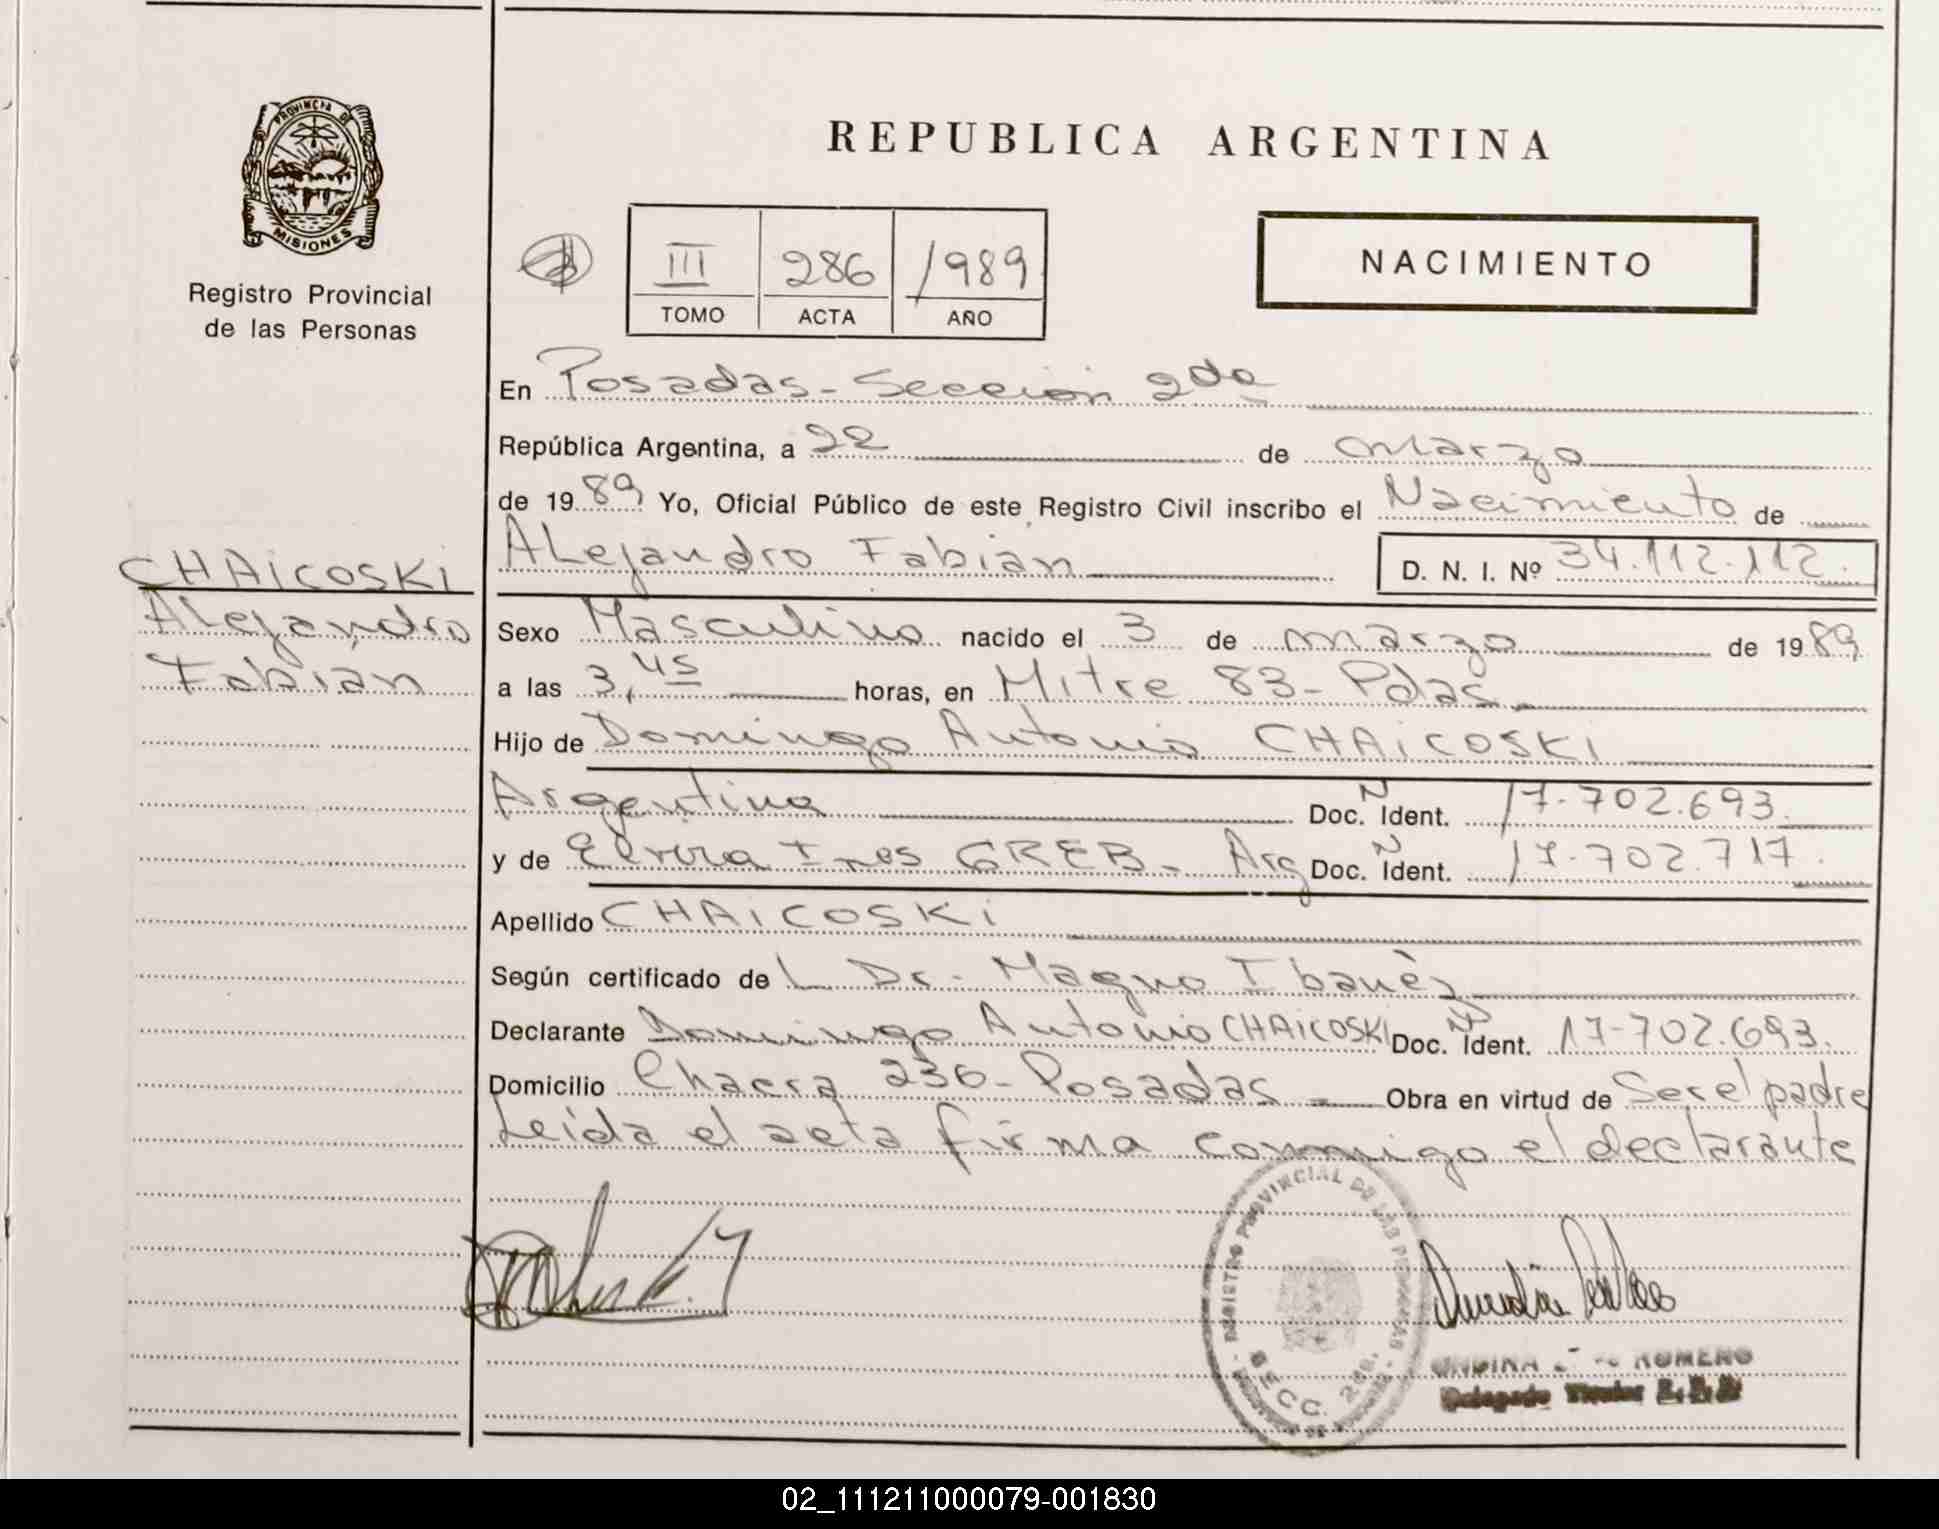 PROVINCIA DE
MISIONES
Registro Provincial
de las Personas
REPUBLICA ARGENTINA
III 286 1989
TOMO ACTA AÑO
NACIMIENTO
En Posadas - Sección 2da
República Argentina, a 22 de marzo
de 1989 Yo, Oficial Público de este Registro Civil inscribo el Nacimiento de
ALejandro Fabian D. N. I. Nº 34.112.112.
CHAiCOSKi
ALejandro
Fabian
Sexo Masculino nacido el 3 de marzo de 1989
a las 3,45 horas, en Mitre 83 - Pdas.
Hijo de Domingo Antonio CHAiCOSKi
Argentina Doc. N Ident. 17.702.693.
y de Elvira Ines GREB - Arg Doc. N Ident. 17.702.717.
Apellido CHAiCOSKi
Según certificado de L Dr. Magno Ibanèz
Declarante Domingo Antonio CHAiCOSKi Doc. N Ident. 17-702.693.
Domicilio Chacra 236 - Posadas - Obra en virtud de Ser el padre
Leída el acta firma conmigo el declarante
REGISTRO PROVINCIAL DE LAS PERSONAS
SECC. 2da.
ROMERO
02_111211000079-001830